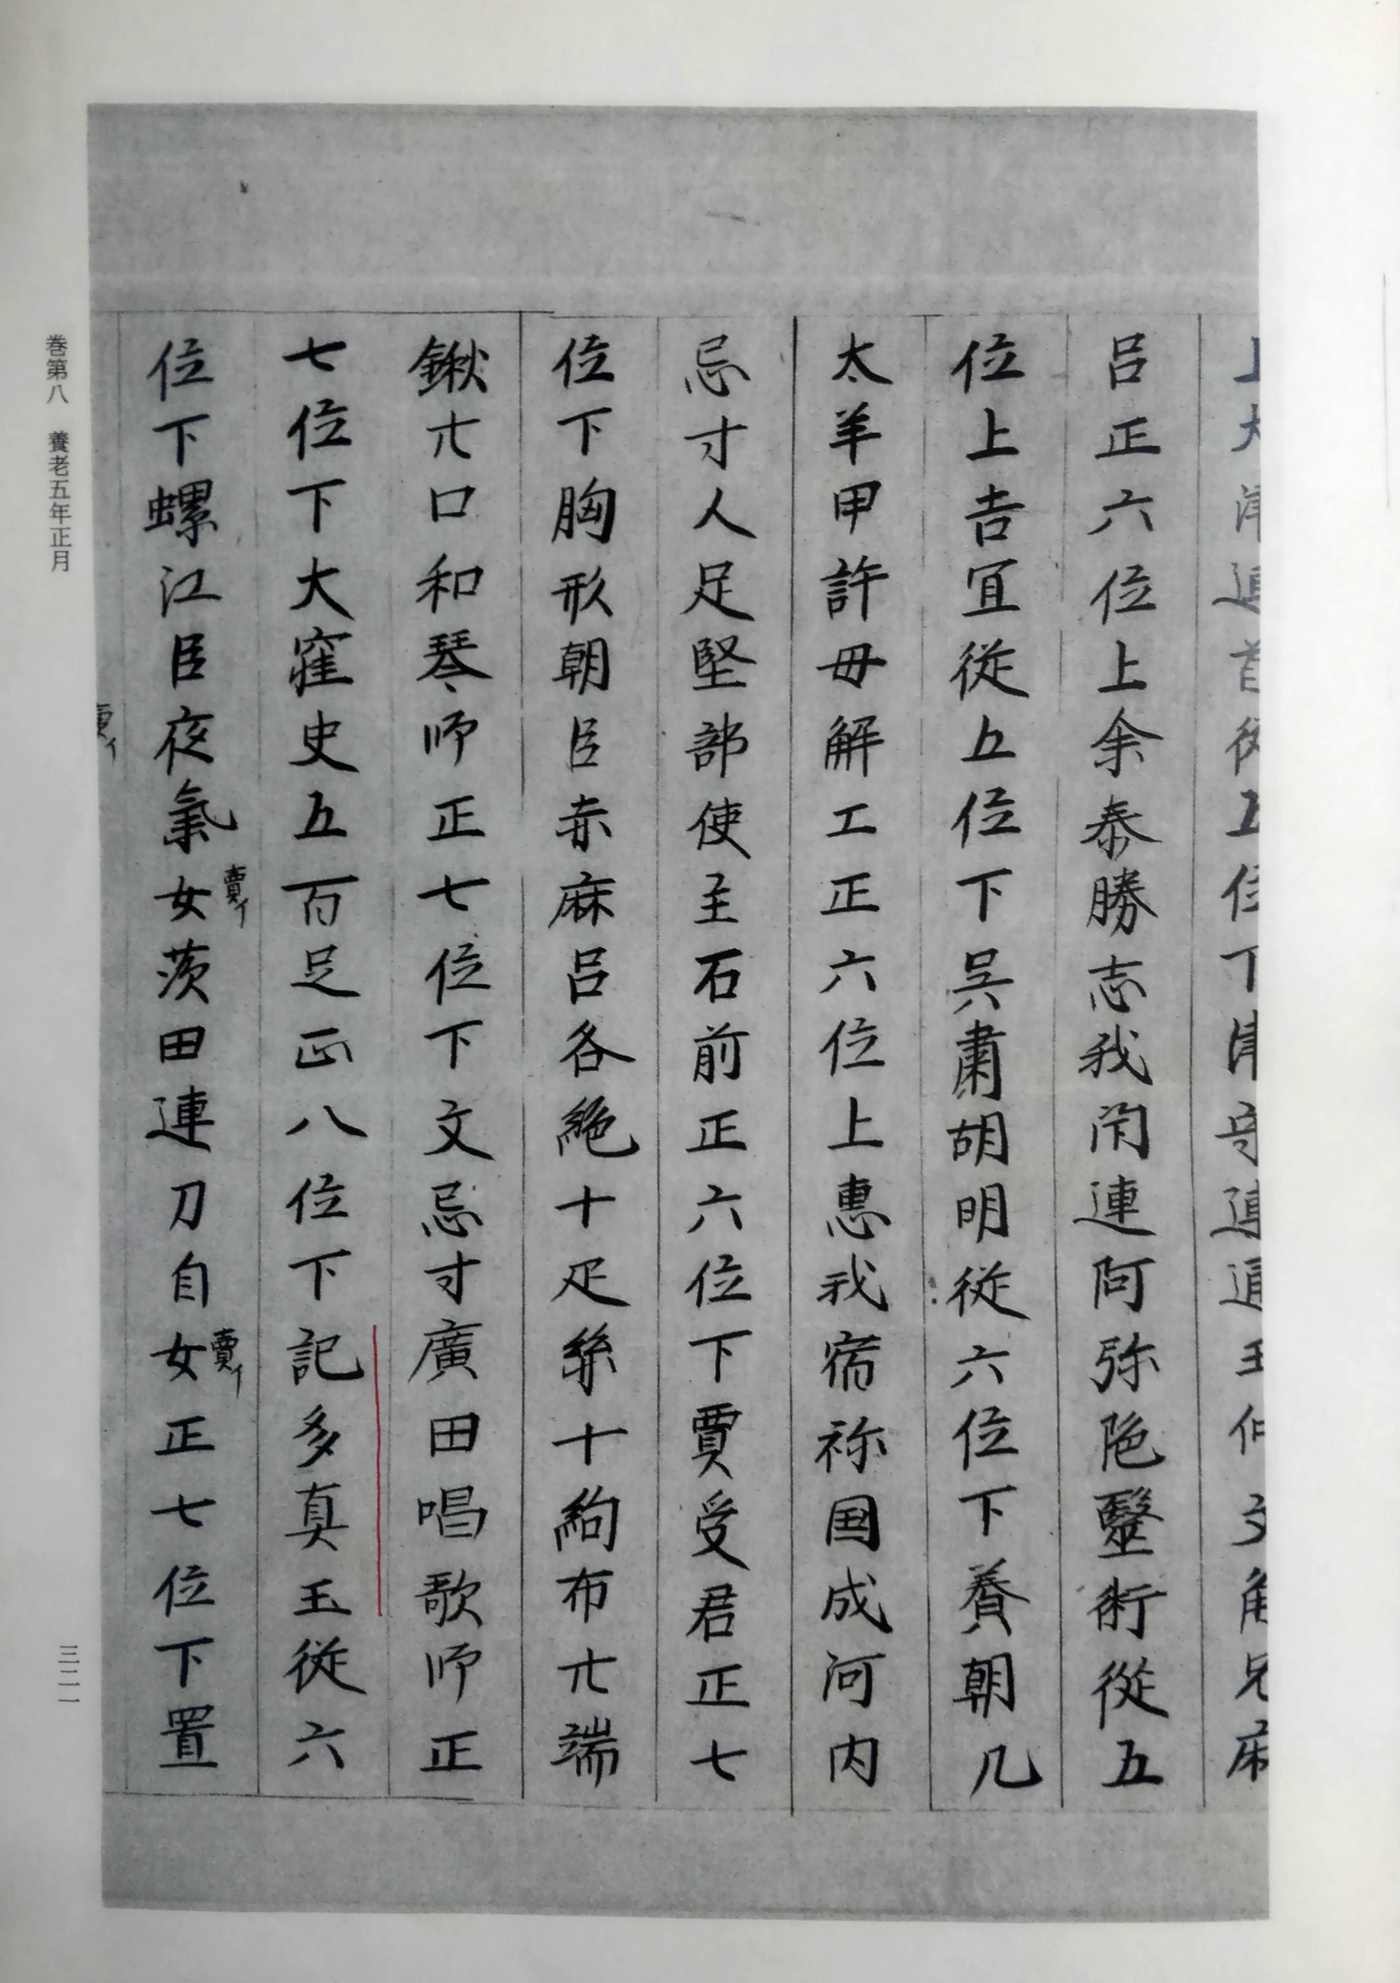 上大津連首從五位下津守連通王仲文角兄麻
呂正六位上余泰勝志我閇連阿弥陁毉術從五
位上吉宜從五位下呉肅胡明從六位下賁朝几
太羊甲許母解工正六位上惠我宿祢国成河内
忌寸人足堅部使主石前正六位下賈受君正七
位下胸形朝臣赤麻呂各絁十疋絲十絇布廿端
鍬廿口和琴師正七位下文忌寸廣田唱歌師正
七位下大窪史五百足正八位下記多真玉從六
位下螺江臣夜氣女茨田連刀自女正七位下置
賣イ
賣イ
賣イ
巻第八 養老五年正月
三二一